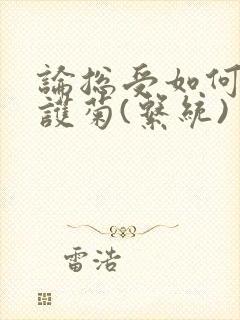 論総受如何
護菊(繫統)
雷浩